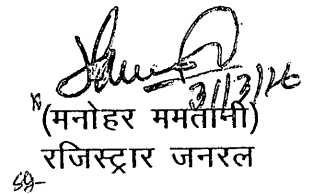 31/3/26
(मनोहर ममतानी)
रजिस्ट्रार जनरल